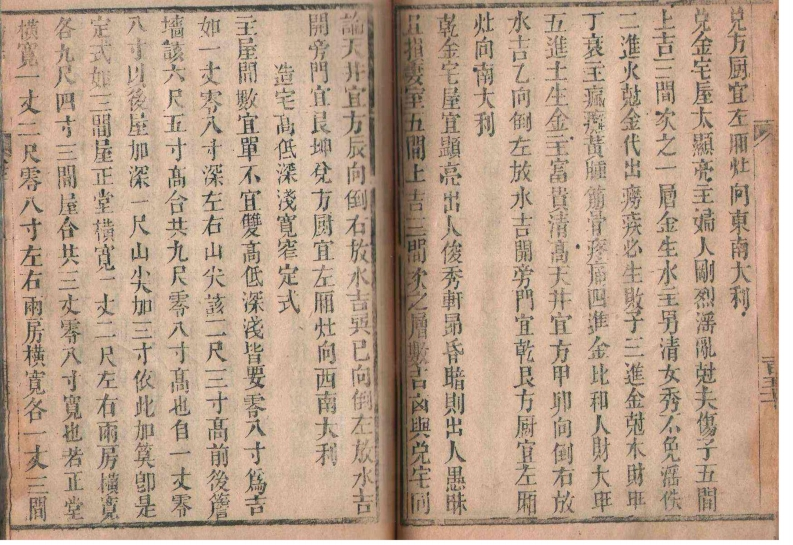 兌方厨宜左厢灶向東南大利
兌金宅屋太顯亮主婦人剛烈滛亂尅夫傷子五間
上吉三間次之一層金生水主男清女秀不免滛佚
二進火尅金代出癆疾必生敗子三進金尅木財丰
丁衰主瘋癆黃腫筋骨疼痛四進金比和人財大旺
五進土生金主富貴清高天井宜方甲卯向倒右放
水吉乙向倒左放水吉開旁門宜乾艮方厨宜左厢
灶向南大利
乾金宅屋宜顯亮出人俊秀軒昻昏暗則出人愚昧
且損妻室五間上吉三間次之層數吉凶與兌宅同
論天井宜方辰向倒右放水吉巽巳向倒左放水吉
開旁門宜艮坤兌方厨宜左厢灶向西南大利
造宅高低深淺寬窄定式
主屋間數宜單不宜雙高低深淺皆要零八寸爲吉
如一丈零八寸深左右山尖該二尺三寸高前後簷
墻該六尺五寸高合共九尺零八寸高也自一丈零
八寸以後屋加深一尺山尖加三寸依此加筭卽是
定式如三間屋正堂橫寬一丈二尺左右兩房橫寬
各九尺四寸三間屋合共三丈零八寸寬也若正堂
橫寬一丈二尺零八寸左右兩房橫寬各一丈三間